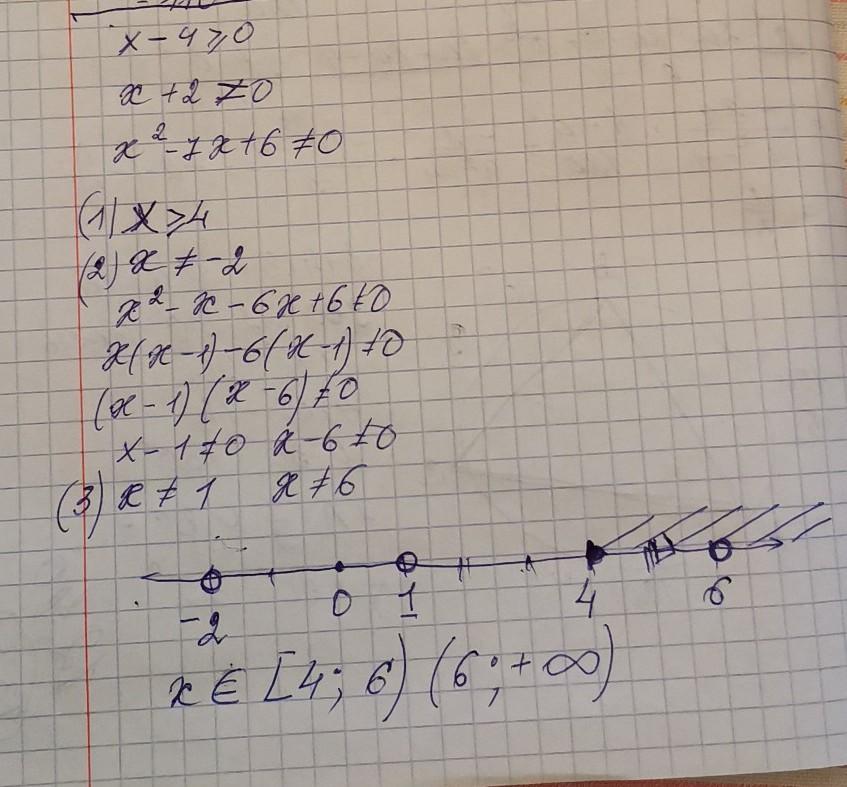 x - 4 ⩾ 0
x + 2 ≠ 0
x² - 7x + 6 ≠ 0
(1) x ⩾ 4
(2) x ≠ -2
x² - x - 6x + 6 ≠ 0
x(x - 1) - 6(x - 1) ≠ 0
(x - 1)(x - 6) ≠ 0
x - 1 ≠ 0 x - 6 ≠ 0
(3) x ≠ 1 x ≠ 6
-2 0 1 4 6
x ∈ [4; 6) (6; +∞)